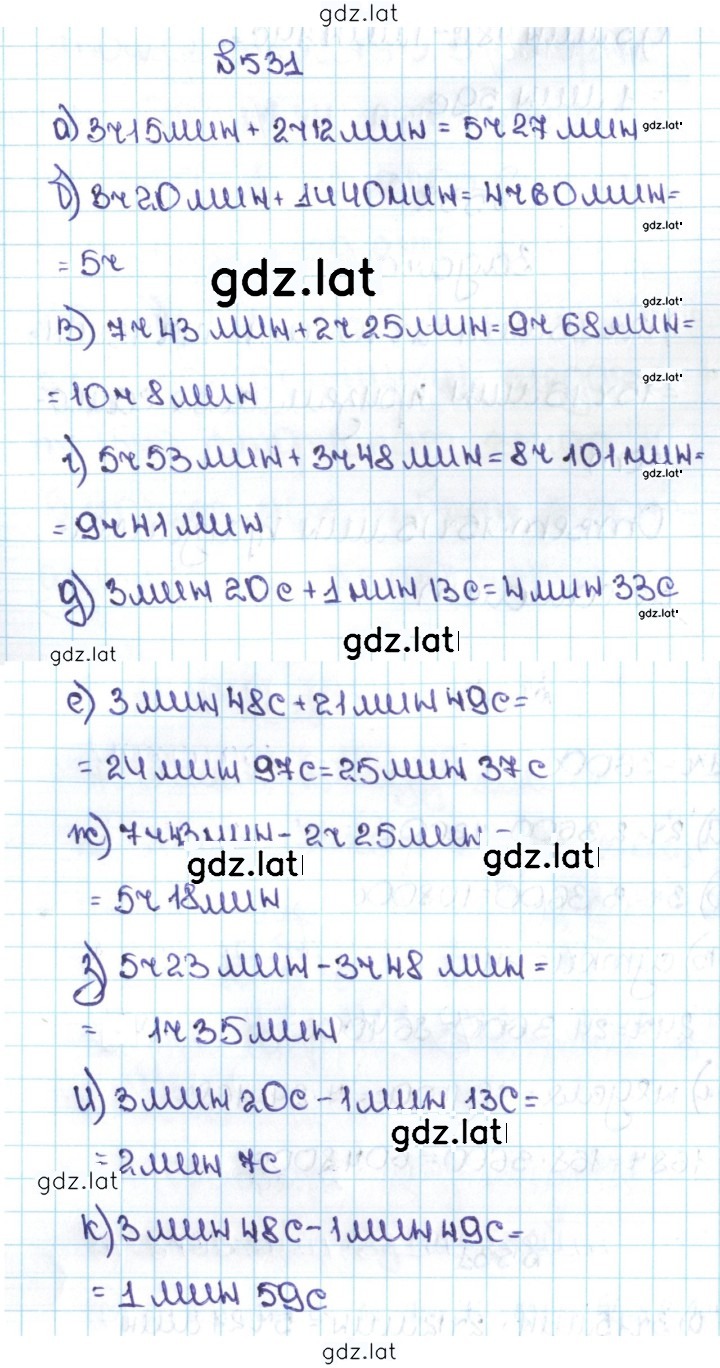 gdz.lat
№531
а) 3ч15мин + 2ч12мин = 5ч27мин gdz.lat
б) 3ч20мин + 1ч40мин = 4ч60мин =
gdz.lat
= 5ч
gdz.lat
gdz.lat
в) 7ч43 мин + 2ч25мин = 9ч68мин =
= 10ч8мин gdz.lat
г) 5ч53мин + 3ч48мин = 8ч101мин =
gdz.lat
= 9ч41мин
д) 3мин 20с + 1мин 13с = 4мин 33с
gdz.lat
gdz.lat
gdz.lat
е) 3мин 48с + 21мин 49с =
= 24мин 97с = 25мин 37с
ж) 7ч43мин - 2ч25мин =
gdz.lat gdz.lat
= 5ч18мин
з) 5ч23мин - 3ч48 мин =
= 1ч35мин
и) 3мин 20с - 1мин 13с =
gdz.lat
= 2мин 7с
gdz.lat
к) 3мин 48с - 1мин 49с =
= 1мин 59с
gdz.lat